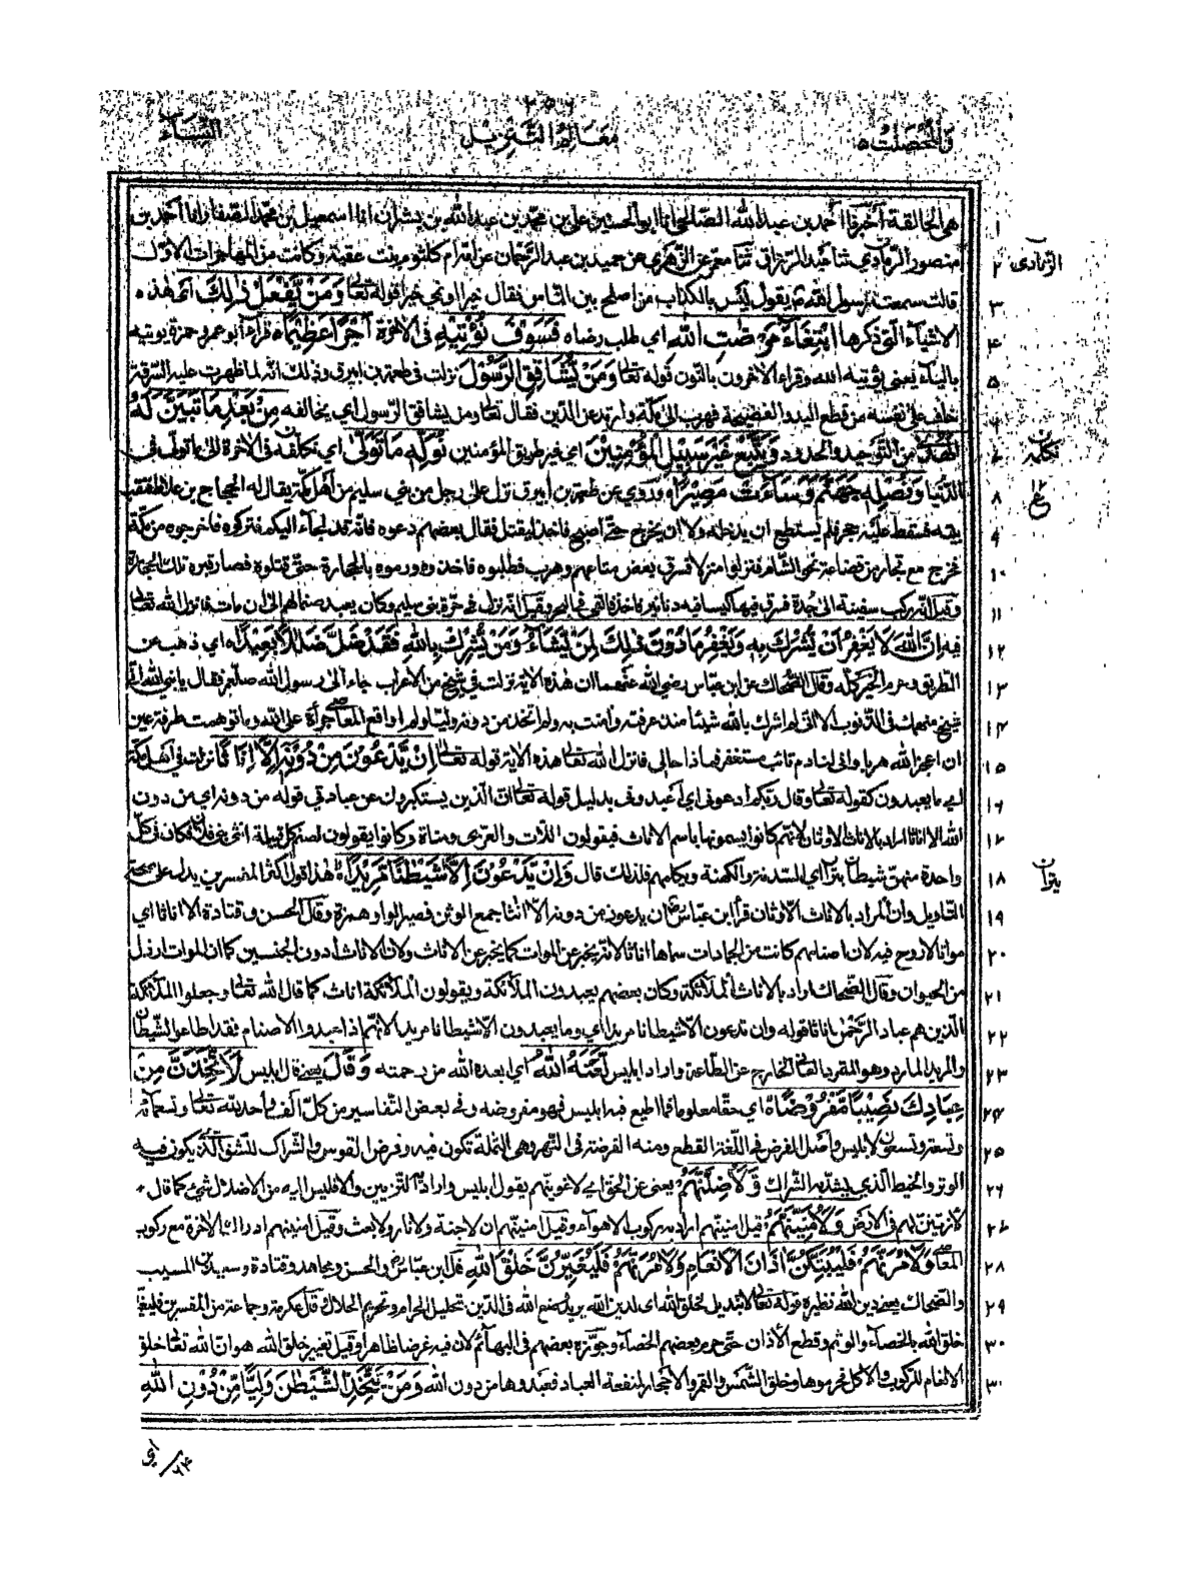 والمحصنت ٥
معالم التنزيل
النساء
هي الحالقة أخبرنا أحمد بن عبد الله الصالحي انا ابو الحسين علي بن محمد بن عبد الله بن بشران انا اسمعيل بن محمد الصفار انا احمد بن ١
منصور الرمادي ثنا عبد الرزاق ثنا معمر عن الزهري عن حميد بن عبد الرحمان عن امه ام كلثوم بنت عقبة وكانت من المهاجرات الاول ٢ الرمادى
قالت سمعت رسول الله يقول ليس بالكذاب من اصلح بين الناس فقال خيرا او نمي خيرا قوله تعالى وَمَنْ يَّفْعَلْ ذٰلِكَ اى هذه ٣
الاشياء التي ذكرها ابْتِغَاءَ مَرْضَاتِ اللهِ اي طلب رضاه فَسَوْفَ نُؤْتِيْهِ فى الاخرة اَجْرًا عَظِيْمًا قراء أبو عمرو حمزة يوتيه ٤
بالياء يعنى يؤتيه الله وقراء الاخرون بالنون قوله تعالى وَمَنْ يُّشَاقِقِ الرَّسُوْلَ نزلت فى طعمة بن ابيرق وذلك انه لما ظهرت عليه السرقة ٥
خاف على نفسه من قطع اليد والفضيحة فهرب الى مكة وارتد عن الدين فقال تعالى ومن يشاقق الرسول اي يخالفه مِنْ بَعْدِ مَا تَبَيَّنَ لَهُ ٦
الْهُدٰى من التوحيد والحدود وَيَتَّبِعْ غَيْرَ سَبِيْلِ الْمُؤْمِنِيْنَ اي غير طريق المؤمنين نُوَلِّهٖ مَا تَوَلّٰى اي نكله فى الاخرة الى ما تولى فى ٧ نكلمه ن
الدنيا وَنُصْلِهٖ جَهَنَّمَ وَسَاءَتْ مَصِيْرًا وروي عن طعمة بن ابيرق نزل على رجل من بني سليم من أهل مكة يقال له الحجاج بن علاط فنقب ٨
بيته فسقط عليه حجر فلم يستطع ان يدخل ولا ان يخرج حتى اصبح فاخذ ليقتل فقال بعضهم دعوه فانه قد لجأ اليكم فتركوه فاخرجوه من مكة ٩
فخرج مع تجار من قضاعة نحو الشام فنزلوا منزلا فسرق بعض متاعهم وهرب فطلبوه فاخذوه ورموه بالحجارة حتى قتلوه فصار قبره تلك الحجارة ١٠
وقيل انه ركب سفينة الى جدة فسرق فيها كيسا فيه دنانير فاخذ فالقي فى البحر وقيل انه نزل فى حرة بني سليم وكان يعبد صنما لهم الى ان مات فانزل الله تعالى ١١
فيه اِنَّ اللهَ لَا يَغْفِرُ اَنْ يُّشْرَكَ بِهٖ وَيَغْفِرُ مَا دُوْنَ ذٰلِكَ لِمَنْ يَّشَاءُ وَمَنْ يُّشْرِكْ بِاللهِ فَقَدْ ضَلَّ ضَلٰلًا بَعِيْدًا اي ذهب عن ١٢
الطريق وحرم الخير كله وقال الضحاك عن ابن عباس رضي الله عنهما ان هذه الاية نزلت في شيخ من الاعراب جاء الى رسول الله صلعم فقال يا نبي الله انى ١٣
شيخ منهمك فى الذنوب الا انى لم اشرك بالله شيئا منذ عرفته وامنت به ولم اتخذ من دونه وليا ولم اواقع المعاصي جرأة على الله وما توهمت طرفة عين ١٤
ان اعجز الله هربا وانى لنادم تائب مستغفر فماذا حالى فانزل الله تعالى هذه الاية قوله تعالى اِنْ يَّدْعُوْنَ مِنْ دُوْنِهٖ اِلَّا اِنَاثًا نزلت فى اهل مكة ١٥
اى ما يعبدون كقوله تعالى وقال ربكم ادعونى اي اعبدونى بدليل قوله تعالى ان الذين يستكبرون عن عبادتي قوله من دونه اي من دون ١٦
الله الا اناثا اراد بالاناث الاوثان لانهم كانوا يسمونها باسم الاناث فيقولون اللات والعزى ومناة وكانوا يقولون لصنم كل قبيلة انثى بنى فلان فكان فى كل ١٧
واحدة منهن شيطان يتراأى للسدنة والكهنة ويكلمهم فلذلك قال وَاِنْ يَّدْعُوْنَ اِلَّا شَيْطٰنًا مَّرِيْدًا هذا قول اكثر المفسرين يدل على صحة ١٨ يتران
التاويل وان المراد بالاناث الاوثان قرأ ابن عباس ان يدعون من دونه الا اثنا جمع الوثن فصير الواو همزة وقال الحسن وقتادة الا اناثا اي ١٩
مواتا لا روح فيه لان اصنامهم كانت من الجمادات سماها اناثا لانه يخبر عن الموات كما يخبر عن الاناث ولان الاناث ادون الجنسين كما ان الموات ارذل ٢٠
من الحيوان وقال الضحاك اراد بالاناث الملائكة وكان بعضهم يعبدون الملائكة ويقولون الملائكة اناث كما قال الله تعالى وجعلوا الملائكة ٢١
الذين هم عباد الرحمن اناثا قوله وان يدعون الا شيطانا مريدا اي وما يعبدون الا شيطانا مريدا لانهم اذا عبدوا الاصنام فقد اطاعوا الشيطان ٢٢
والمريد المارد وهو المتمرد العاتى الخارج عن الطاعة واراد ابليس لَعَنَهُ اللهُ اي ابعده الله من رحمته وَقَالَ يعنى قال ابليس لَاَتَّخِذَنَّ مِنْ ٢٣
عِبَادِكَ نَصِيْبًا مَّفْرُوْضًا اي حقا معلوما فما اطيع فيه ابليس فهو مفروضه وفى بعض التفاسير من كل الف واحد لله تعالى وتسعمائة ٢٤
وتسعة وتسعون لابليس واصل الفرض فى اللغة القطع ومنه الفرضة فى النهر وهى الثلمة تكون فيه وفرض القوس والشراك للشق الذى يكون فيه ٢٥
الوتر والخيط الذي يشد به الشراك وَّلَاُضِلَّنَّهُمْ يعنى عن الحق اى لاغوينهم يقول ابليس واراد به التزيين والا فليس اليه من الاضلال شيئ كما قال ٢٦
لازينن لهم فى الارض وَلَاُمَنِّيَنَّهُمْ قيل امنينهم اراد به ركوب الاهواء وقيل امنينهم ان لاجنة ولا نار ولا بعث وقيل امنينهم ادراك الاخرة مع ركوب ٢٧
المعاصي وَلَاٰمُرَنَّهُمْ فَلَيُبَتِّكُنَّ اٰذَانَ الْاَنْعَامِ وَلَاٰمُرَنَّهُمْ فَلَيُغَيِّرُنَّ خَلْقَ اللهِ قال ابن عباس والحسن ومجاهد وقتادة وسعيد بن المسيب ٢٨
والضحاك يعنى دين الله نظيره قوله تعالى لا تبديل لخلق الله اى لدين الله يريد وضع الله فى الدين بتحليل الحرام وتحريم الحلال وقال عكرمة وجماعة من المفسرين فليغيرن ٢٩
خلق الله بالخصاء والوشم وقطع الأذان حتى حرم بعضهم الخصاء وجوزه بعضهم فى البهائم لان فيه غرضا ظاهرا وقيل تغيير خلق الله هو ان الله تعالى خلق ٣٠
الانعام للركوب والاكل فحرموها وخلق الشمس والقمر والاحجار لمنفعة العباد فعبدوها من دون الله وَمَنْ يَّتَّخِذِ الشَّيْطٰنَ وَلِيًّا مِّنْ دُوْنِ اللهِ ٣٠